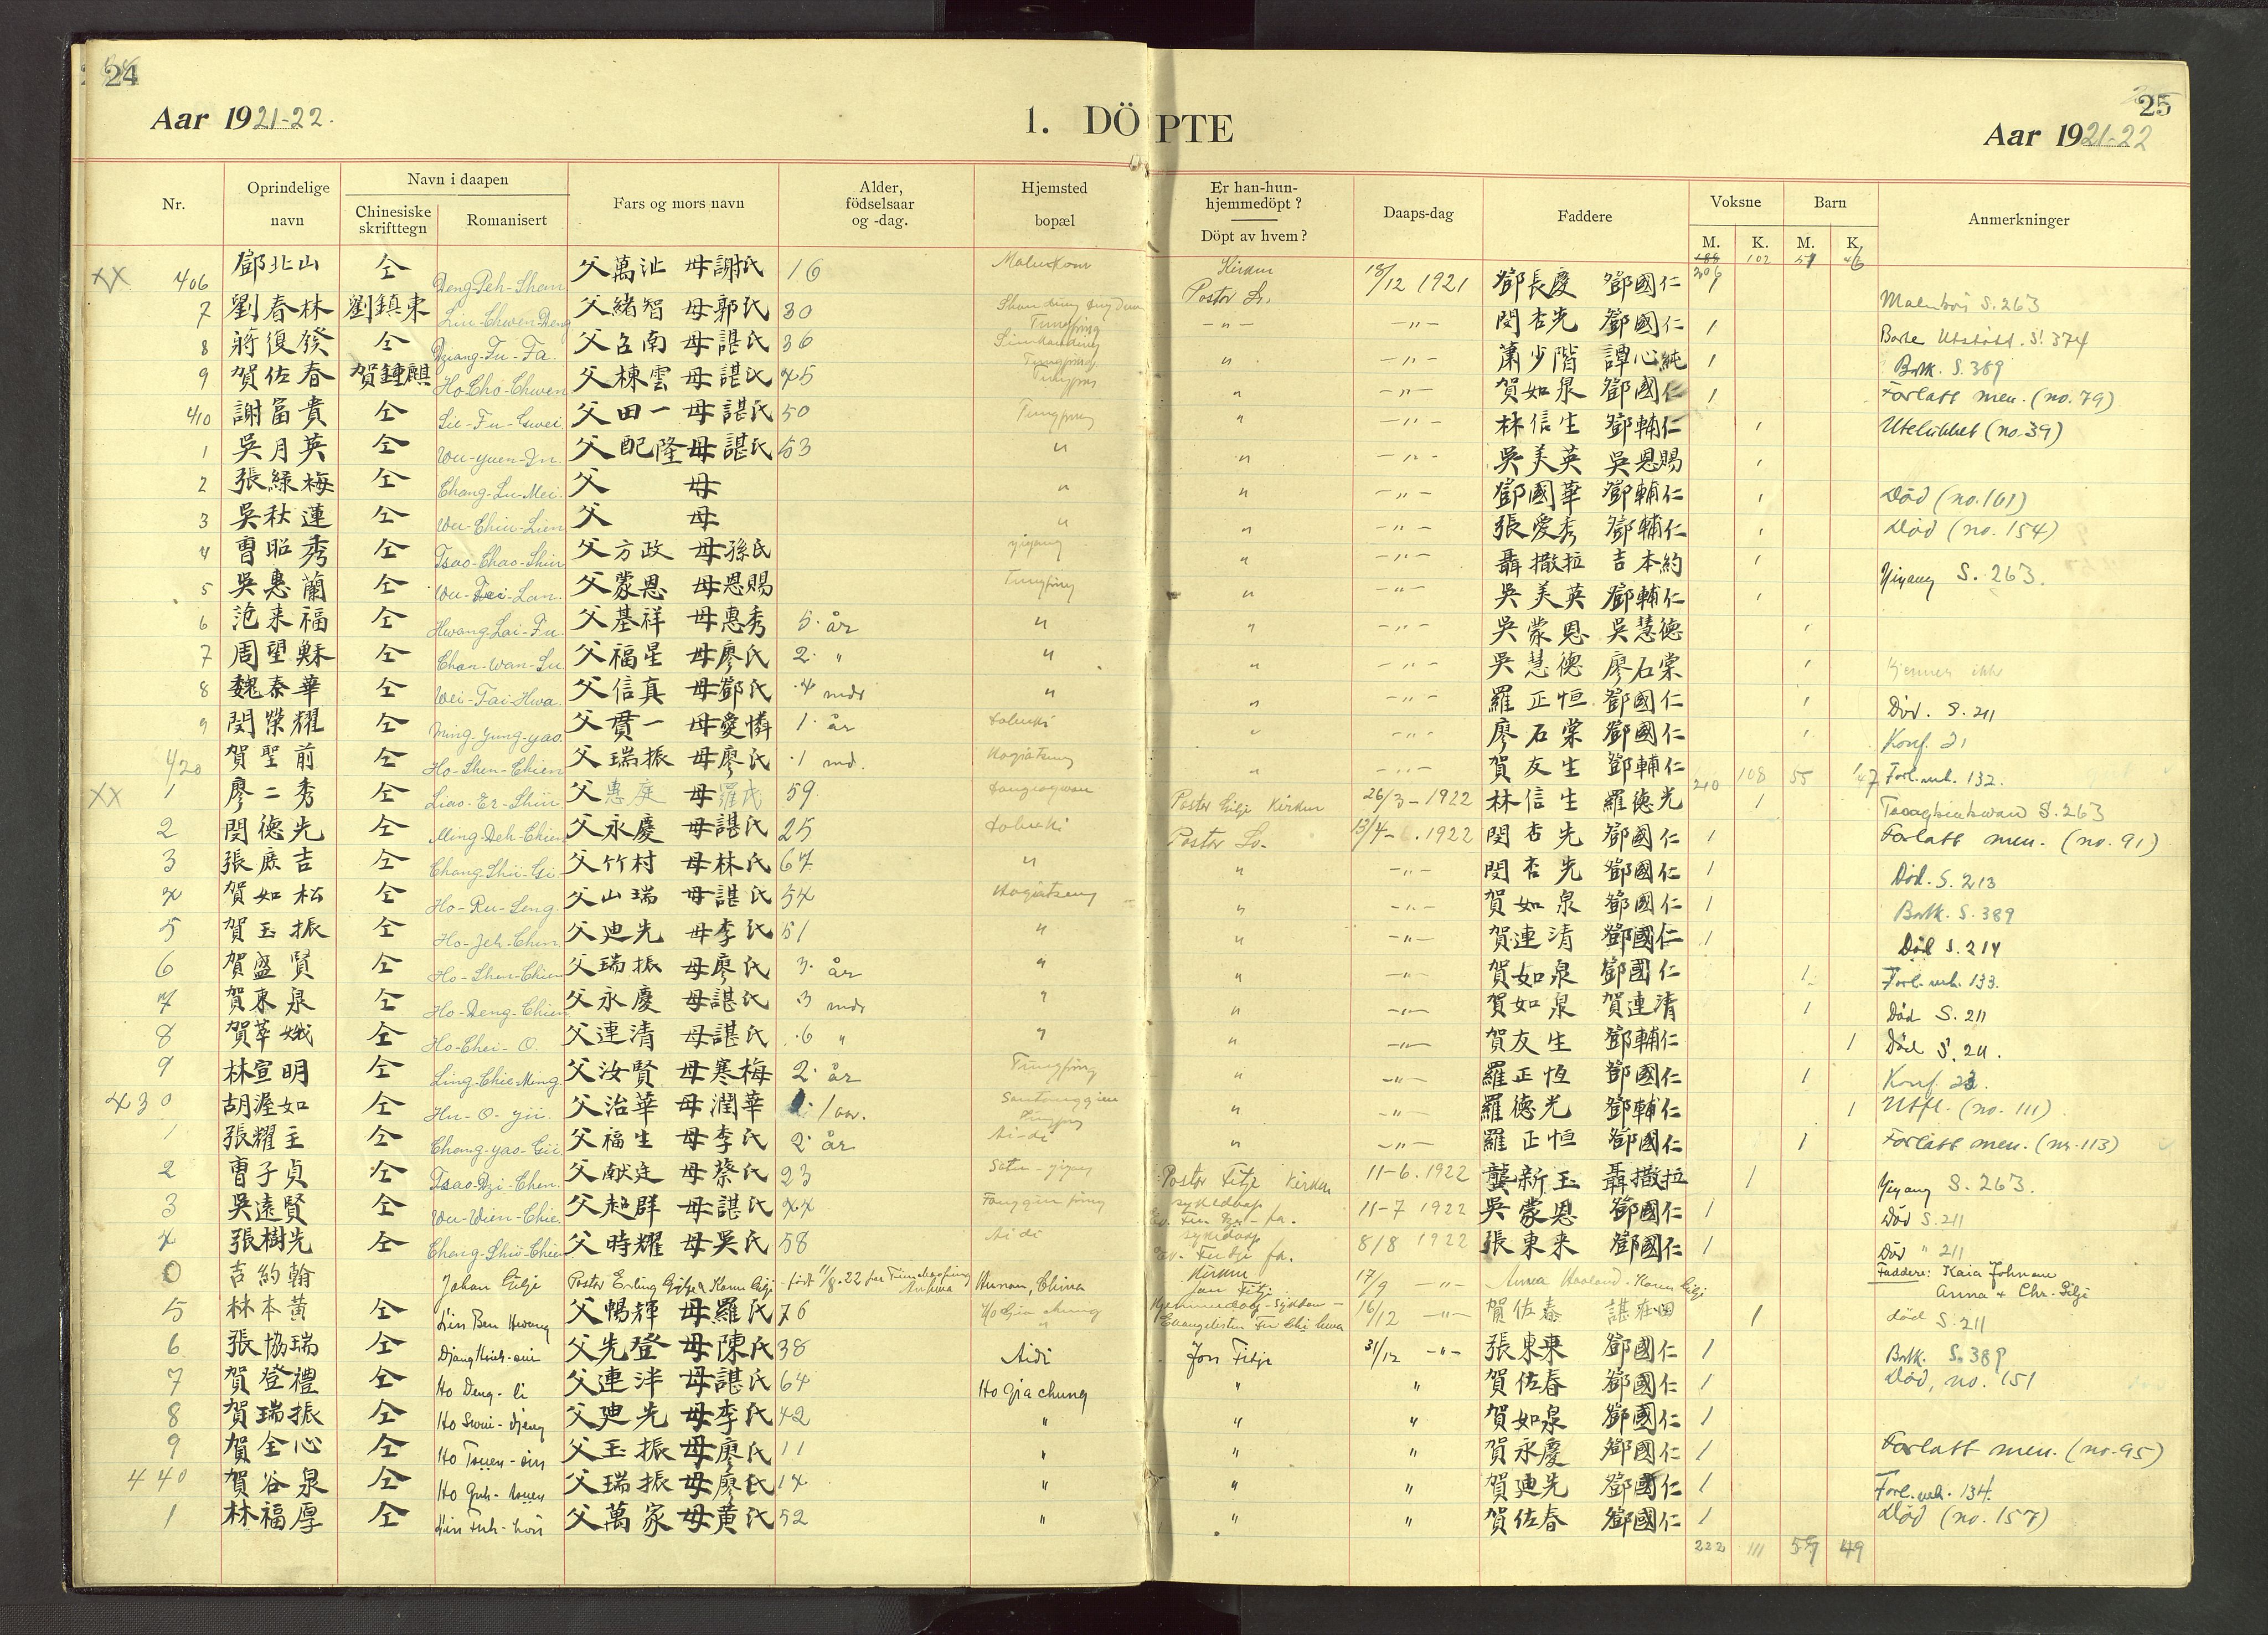 24
Aar 1921-22.
1. DÖPTE
25
Aar 1921-22
Nr. Oprindelige navn Navn i daapen Chinesiske skrifttegn Romanisert Fars og mors navn Alder, födselsaar og -dag. Hjemsted bopæl Er han-hun-hjemmedöpt? Döpt av hvem? Daaps-dag Faddere Voksne M. K. Barn M. K. Anmerkninger
206 102 51 46
XX 406 鄧北山 仝 Deng-Peh-Shan 父萬沚 母謝氏 16 Kirken Pastor So. 18/12 1921 鄧長慶 鄧國仁 1 S. 263
7 劉春林 劉鎮東 Liu-Chwen-Deng 父緒智 母郭氏 30 Tungping -〃- -〃- 閔杏先 鄧國仁 1 S. 374
8 蔣復發 仝 Dziang-Fu-Fa. 父名南 母諶氏 36 〃 -〃- 蕭少階 譚心純 1 Bortk. S. 389
9 賀佐春 賀鍾麒 Ho-Cho-Chwen 父棟雲 母諶氏 45 〃 -〃- 賀如泉 鄧國仁 1 Forlatt men. (no. 79)
410 謝富貴 仝 Sie-Fu-Gwei 父田一 母諶氏 50 Tungping 〃 -〃- 林信生 鄧輔仁 1 Utelukket (no. 39)
1 吳月英 仝 Wu-Yuen-In 父配隆 母諶氏 53 〃 〃 -〃- 吳美英 吳恩賜 1
2 張綠梅 仝 Chang-Lu-Mei 父 母 〃 〃 -〃- 鄧國華 鄧輔仁 1 Död (no. 161)
3 吳秋蓮 仝 Wu-Chiu-Lien 父 母 〃 〃 -〃- 張愛秀 鄧輔仁 1 Död (no. 154)
4 曹昭秀 仝 Tsao-Chao-Shiu 父方政 母孫氏 Yiyang 〃 -〃- 聶撒拉 吉本約 1 Yiyang S. 263.
5 吳惠蘭 仝 Wu-Fei-Lan. 父蒙恩 母恩賜 Tungping 〃 -〃- 吳美英 鄧輔仁 1
6 范来福 仝 Hwang-Lai-Fu. 父基祥 母惠秀 5. år 〃 〃 -〃- 吳蒙恩 吳慧德 1
7 周望穌 仝 Chan-Wan-Su 父福星 母廖氏 2. 〃 〃 〃 -〃- 吳慧德 廖石棠 1 Kjenner ikke
8 魏泰華 仝 Wei-Tai-Hwa. 父信真 母鄧氏 4 mdr 〃 〃 -〃- 羅正恒 鄧國仁 1 Död. S. 211
9 閔榮耀 仝 Ming-Yung-yao. 父貫一 母愛憐 1. år 〃 -〃- 廖石棠 鄧國仁 1 Konf. 21
420 賀聖前 仝 Ho-Shen-Chien 父瑞振 母廖氏 1 md. 〃 -〃- 賀友生 鄧輔仁 Forl. mh. 132.
210 108 55 47
XX 1 廖二秀 仝 Liao-Er-Shiu 父惠庭 母羅氏 59. Pastor Gilje Kirken 26/3-1922 林信生 羅德光 1 S. 263
2 閔德先 仝 Ming-Deh-Chien 父永慶 母諶氏 25 Pastor So- 13/4-1922 閔杏先 鄧國仁 1 Forlatt men. (no. 91)
3 張庶吉 仝 Chang-Shu-Gi. 父竹村 母林氏 67. 〃 〃 -〃- 閔杏先 鄧國仁 1 Död. S. 213
4 賀如松 仝 Ho-Ru-Seng. 父山瑞 母諶氏 54 〃 -〃- 賀如泉 鄧國仁 1 Bortk. S. 389
5 賀玉振 仝 Ho-Jeh-Chen. 父廸先 母李氏 51 〃 〃 -〃- 賀連清 鄧國仁 1 Död S. 214
6 賀盛賢 仝 Ho-Shen-Chien 父瑞振 母廖氏 3. år 〃 〃 -〃- 賀如泉 鄧國仁 1 Forl. mh. 133.
7 賀東泉 仝 Ho-Deng-Chien 父永慶 母諶氏 3 mdr 〃 〃 -〃- 賀如泉 賀連清 1 Död S. 211
8 賀萃娥 仝 Ho-Chei-O. 父連清 母諶氏 6 〃 〃 〃 -〃- 賀友生 鄧輔仁 1 Död S. 211.
9 林宣明 仝 Ling-Chie-Ming. 父汝賢 母寒梅 2. år Tungping 〃 -〃- 羅正恆 鄧國仁 1 Konf.
430 胡渥如 仝 Hu-O-Yü. 父治華 母潤華 1 aar. 〃 -〃- 羅德光 鄧輔仁 1 Utfl. (no. 111)
1 張耀主 仝 Chang-yao-Gü 父福生 母李氏 2. år Ai-di 〃 -〃- 羅正恒 鄧國仁 1 Forlatt men. (nr. 113)
2 曹子貞 仝 Tsao-Dzi-Chen. 父献廷 母蔡氏 23 Pastor Fitje Kirken 11-6. 1922 龔新玉 聶撒拉 1 Yiyang S. 263.
3 吳遠賢 仝 Wu-Wien-Chien 父超群 母諶氏 44 sykedaap 11-7 1922 吳蒙恩 鄧國仁 1 Död S. 211
4 張樹先 仝 Chang-Shu-Chien 父時耀 母吳氏 58 Ai di sykedaap 8/8 1922 張東来 鄧國仁 1 Död 〃 211
0 吉約翰 Johan Gilje Pastor Erling Gilje & Karen Gilje född 11/8.22 Hunan, China Kirken Jon Fitje 17/9 -〃- Anna Haaland - Karen Gilje Faddere: Kaia Johnsen Anna + Chr. Gilje
5 林本黃 仝 Lin Ben Hwang 父暢輝 母羅氏 76 Ho Gia chung Evangelisten 16/12 -〃- 賀佐春 諶在田 1 död S. 211
6 張協瑞 仝 父先登 母陳氏 38 Aidi Jon Fitje 31/12 -〃- 張東来 鄧國仁 1 Bortk. S. 389
7 賀登禮 仝 Ho Deng-li 父連泮 母諶氏 64 Ho Gia chung 〃 〃 賀佐春 鄧國仁 1 Död, no. 151
8 賀瑞振 仝 Ho Swui-djeng 父廸先 母李氏 42 〃 〃 〃 賀如泉 鄧國仁 1
9 賀全心 仝 Ho Tsuen-sin 父玉振 母廖氏 11 〃 〃 〃 賀永慶 鄧國仁 1 Forlatt men. (no. 95)
440 賀谷泉 仝 Ho Guh-tsuen 父瑞振 母廖氏 14 〃 〃 〃 賀廸先 鄧國仁 1 Forl. mh. 134.
1 林福厚 仝 Lin Fuh-hou 父萬家 母黃氏 52 〃 〃 〃 賀佐春 鄧國仁 1 Död (no. 157)
222 111 59 49